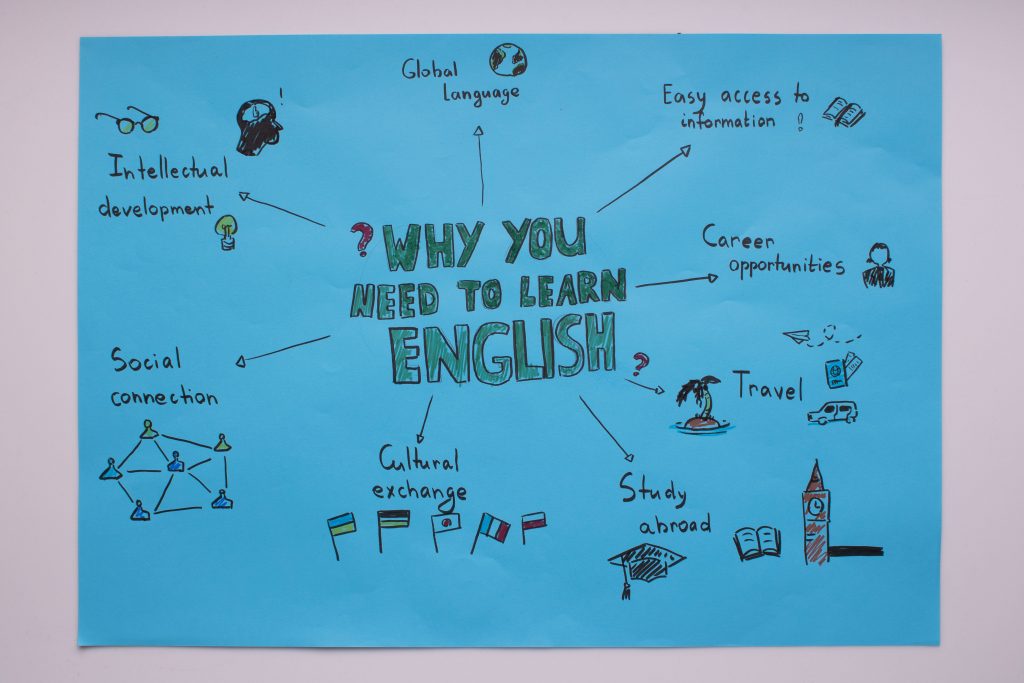 ? WHY YOU
NEED TO LEARN
ENGLISH ?
Global
Language
Easy access to
information !
Career
opportunities
Travel
Study
abroad
Cultural
exchange
Social
connection
Intellectual
development
!